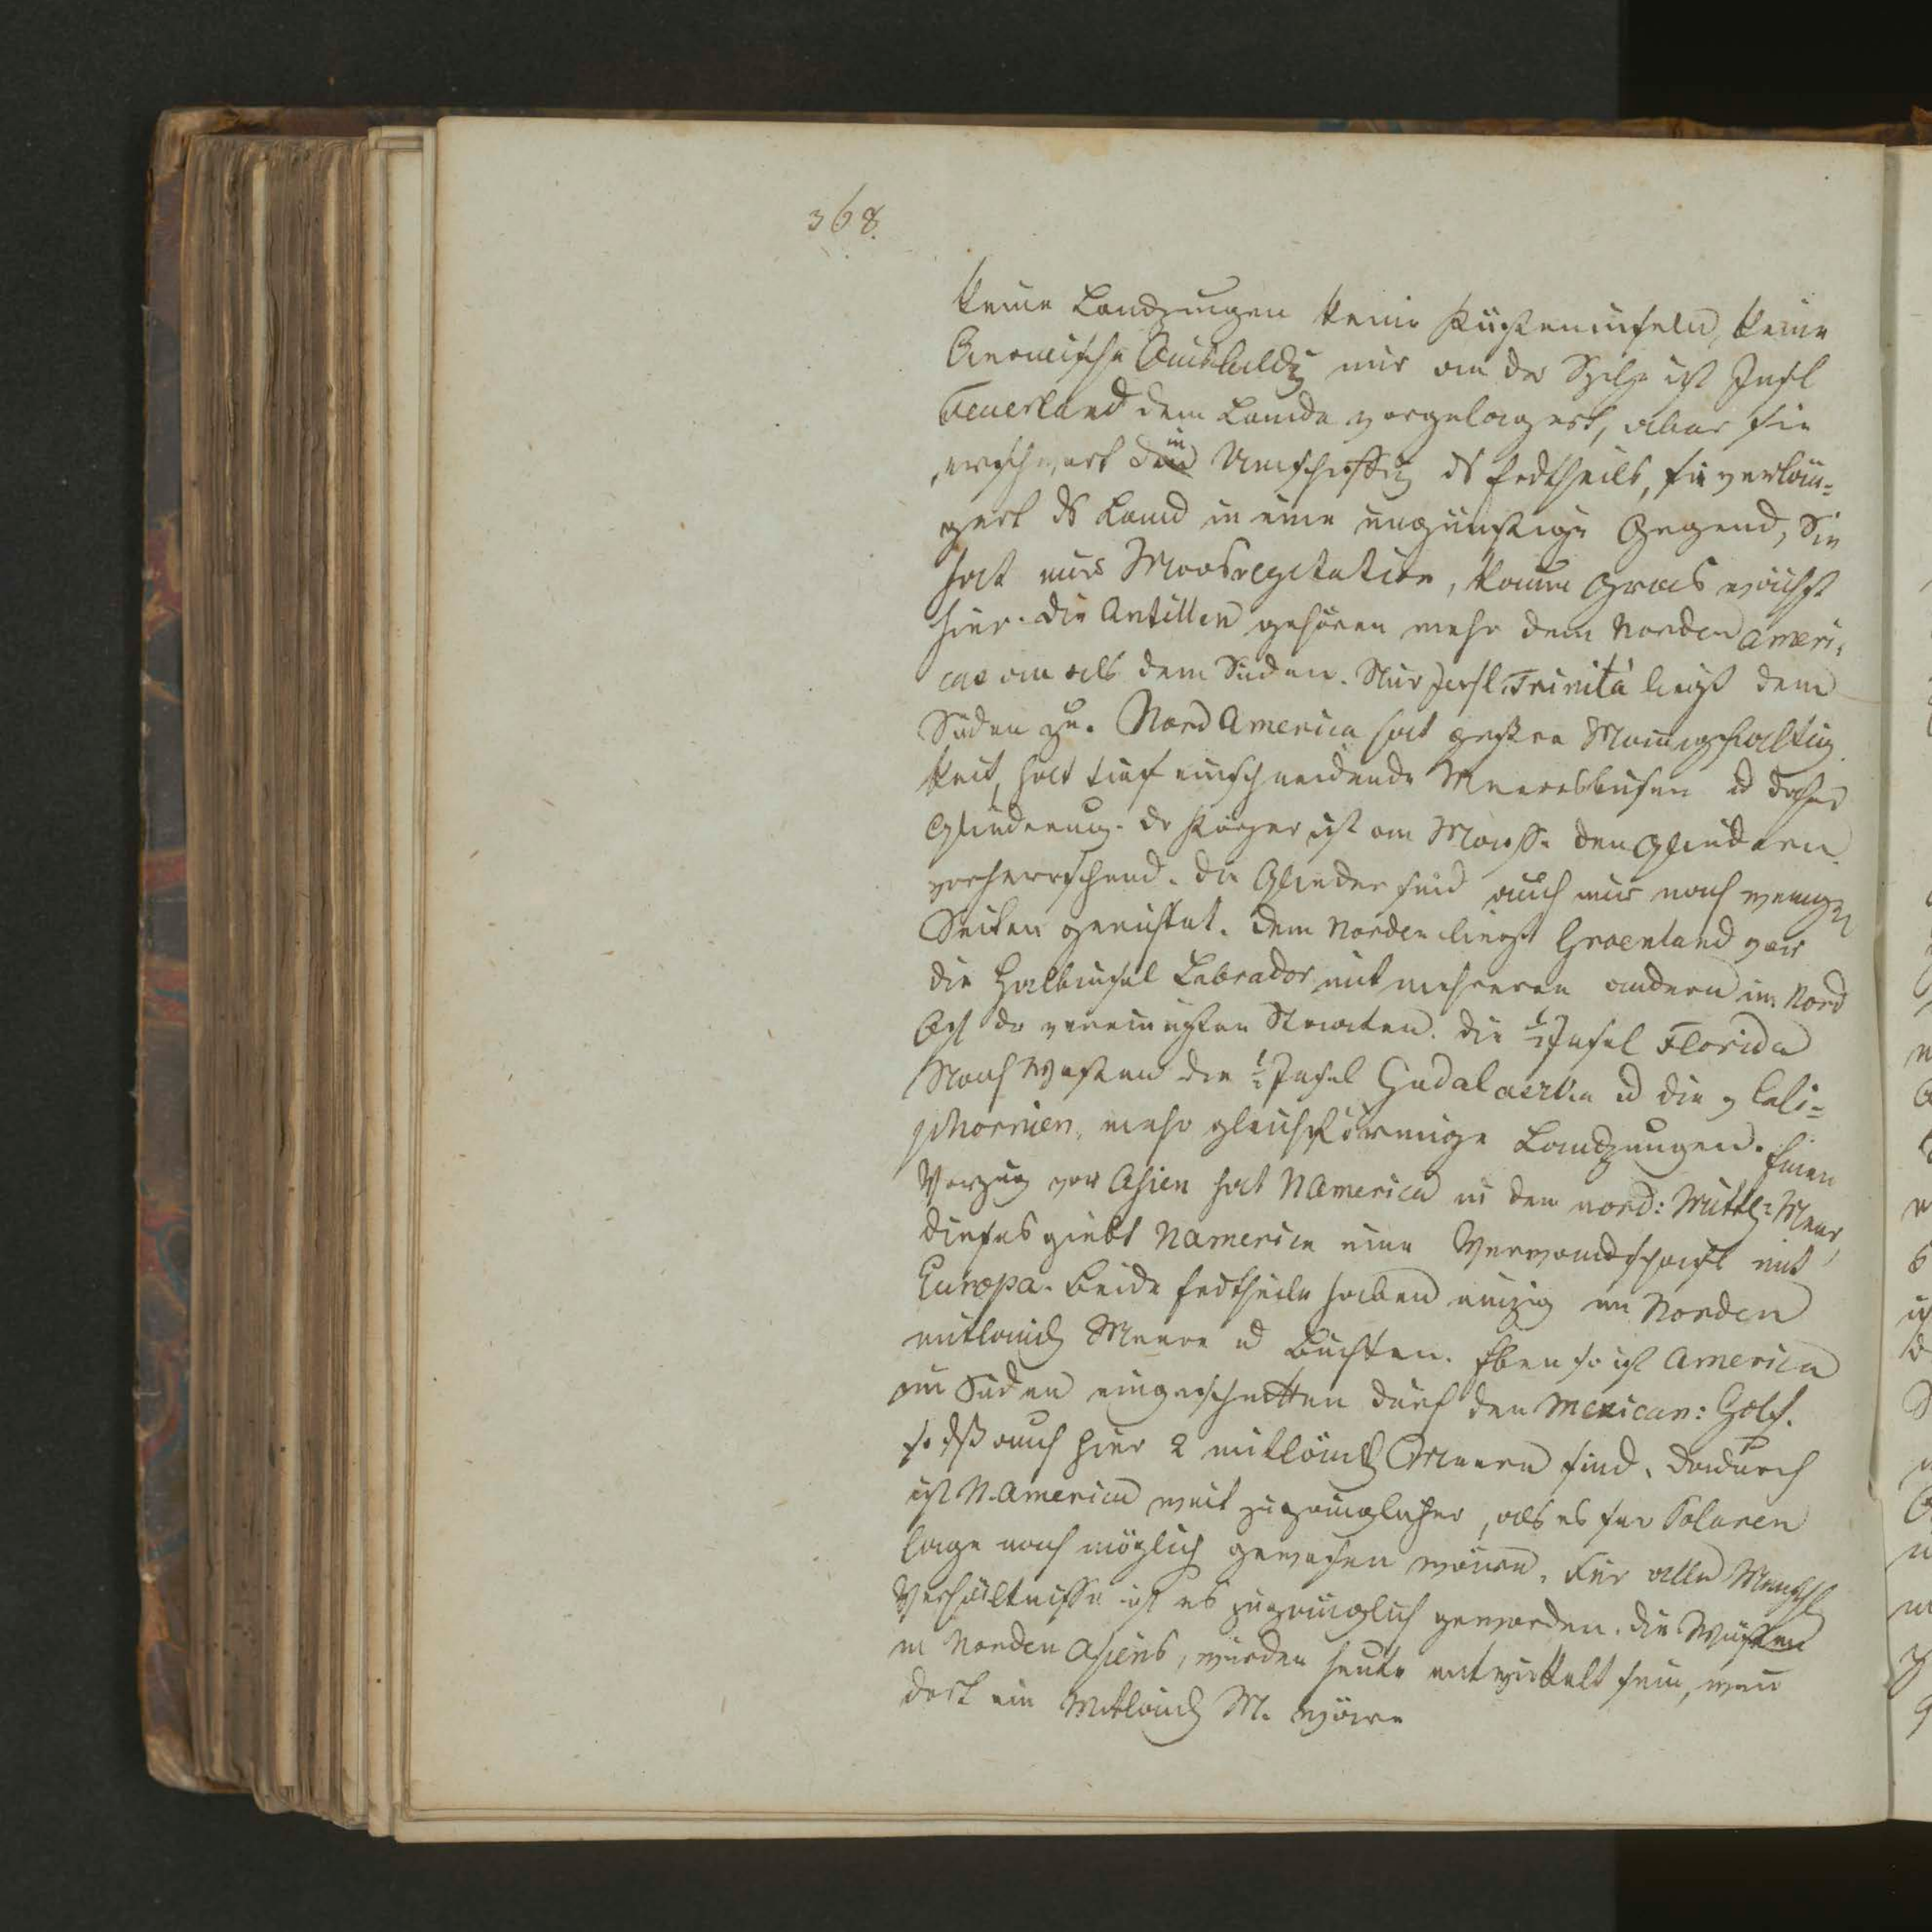 368.
keine Landzungen keine Küsteninseln, keine
Oceanische Ausbildg nur an der Spitze ist Insel
Feuerland dem Lande vorgelagert, aber sie
erschwert die Umschiffg ds Erdtheils, sie verlän=
gert ds Land in eine ungünstige Gegend, Sie
hat nur Moosvegetation, kaum Gras wächst
hier. Die Antillen gehören mehr dem Norden Ameri,
cas an als dem Süden. Nur Insl. Trinità liegt dem
Süden zu. Nord America hat größere Mannigfaltig
keit, hat tief einschneidende Meeresbusen u daher
Gliederung. Der Körper ist an Masse den Gliedern
vorherrschend. Die Glieder sind auch nur nach wenigen
Seiten gerichtet. Dem Norden liegt Groenland vor
die Halbinsel Labrador mit mehreren andern im Nord
Ost der vereinigten Staaten. Die ½Insel Florida
Nach Westen die ½Insel u die v Cali=
phornien, mehr gleichförmige Landzungen. Einen
Vorzug vor Asien hat NAmerica in dem nord: Mittl: Meer,
dieses giebt NAmerica eine Verwandschaft mit
Europa. Beide Erdtheile haben einzig im Norden
mitländ Meere u Buchten. Eben so ist America
im Süden eingeschnitten durch den Mexican: Golf.
so dß auch hier 2 mitländ Meere sind. Dadurch
ist N.America weit zugänglicher, als es sr Polaren
Lage nach möglich gewesen wäre. Für alle Menschl
Verhältnisse ist es zugänglich geworden. Die Wüsten
in Norden Asiens, würden heute entwickelt sein, wen
dort ein Mitländ M. wäre